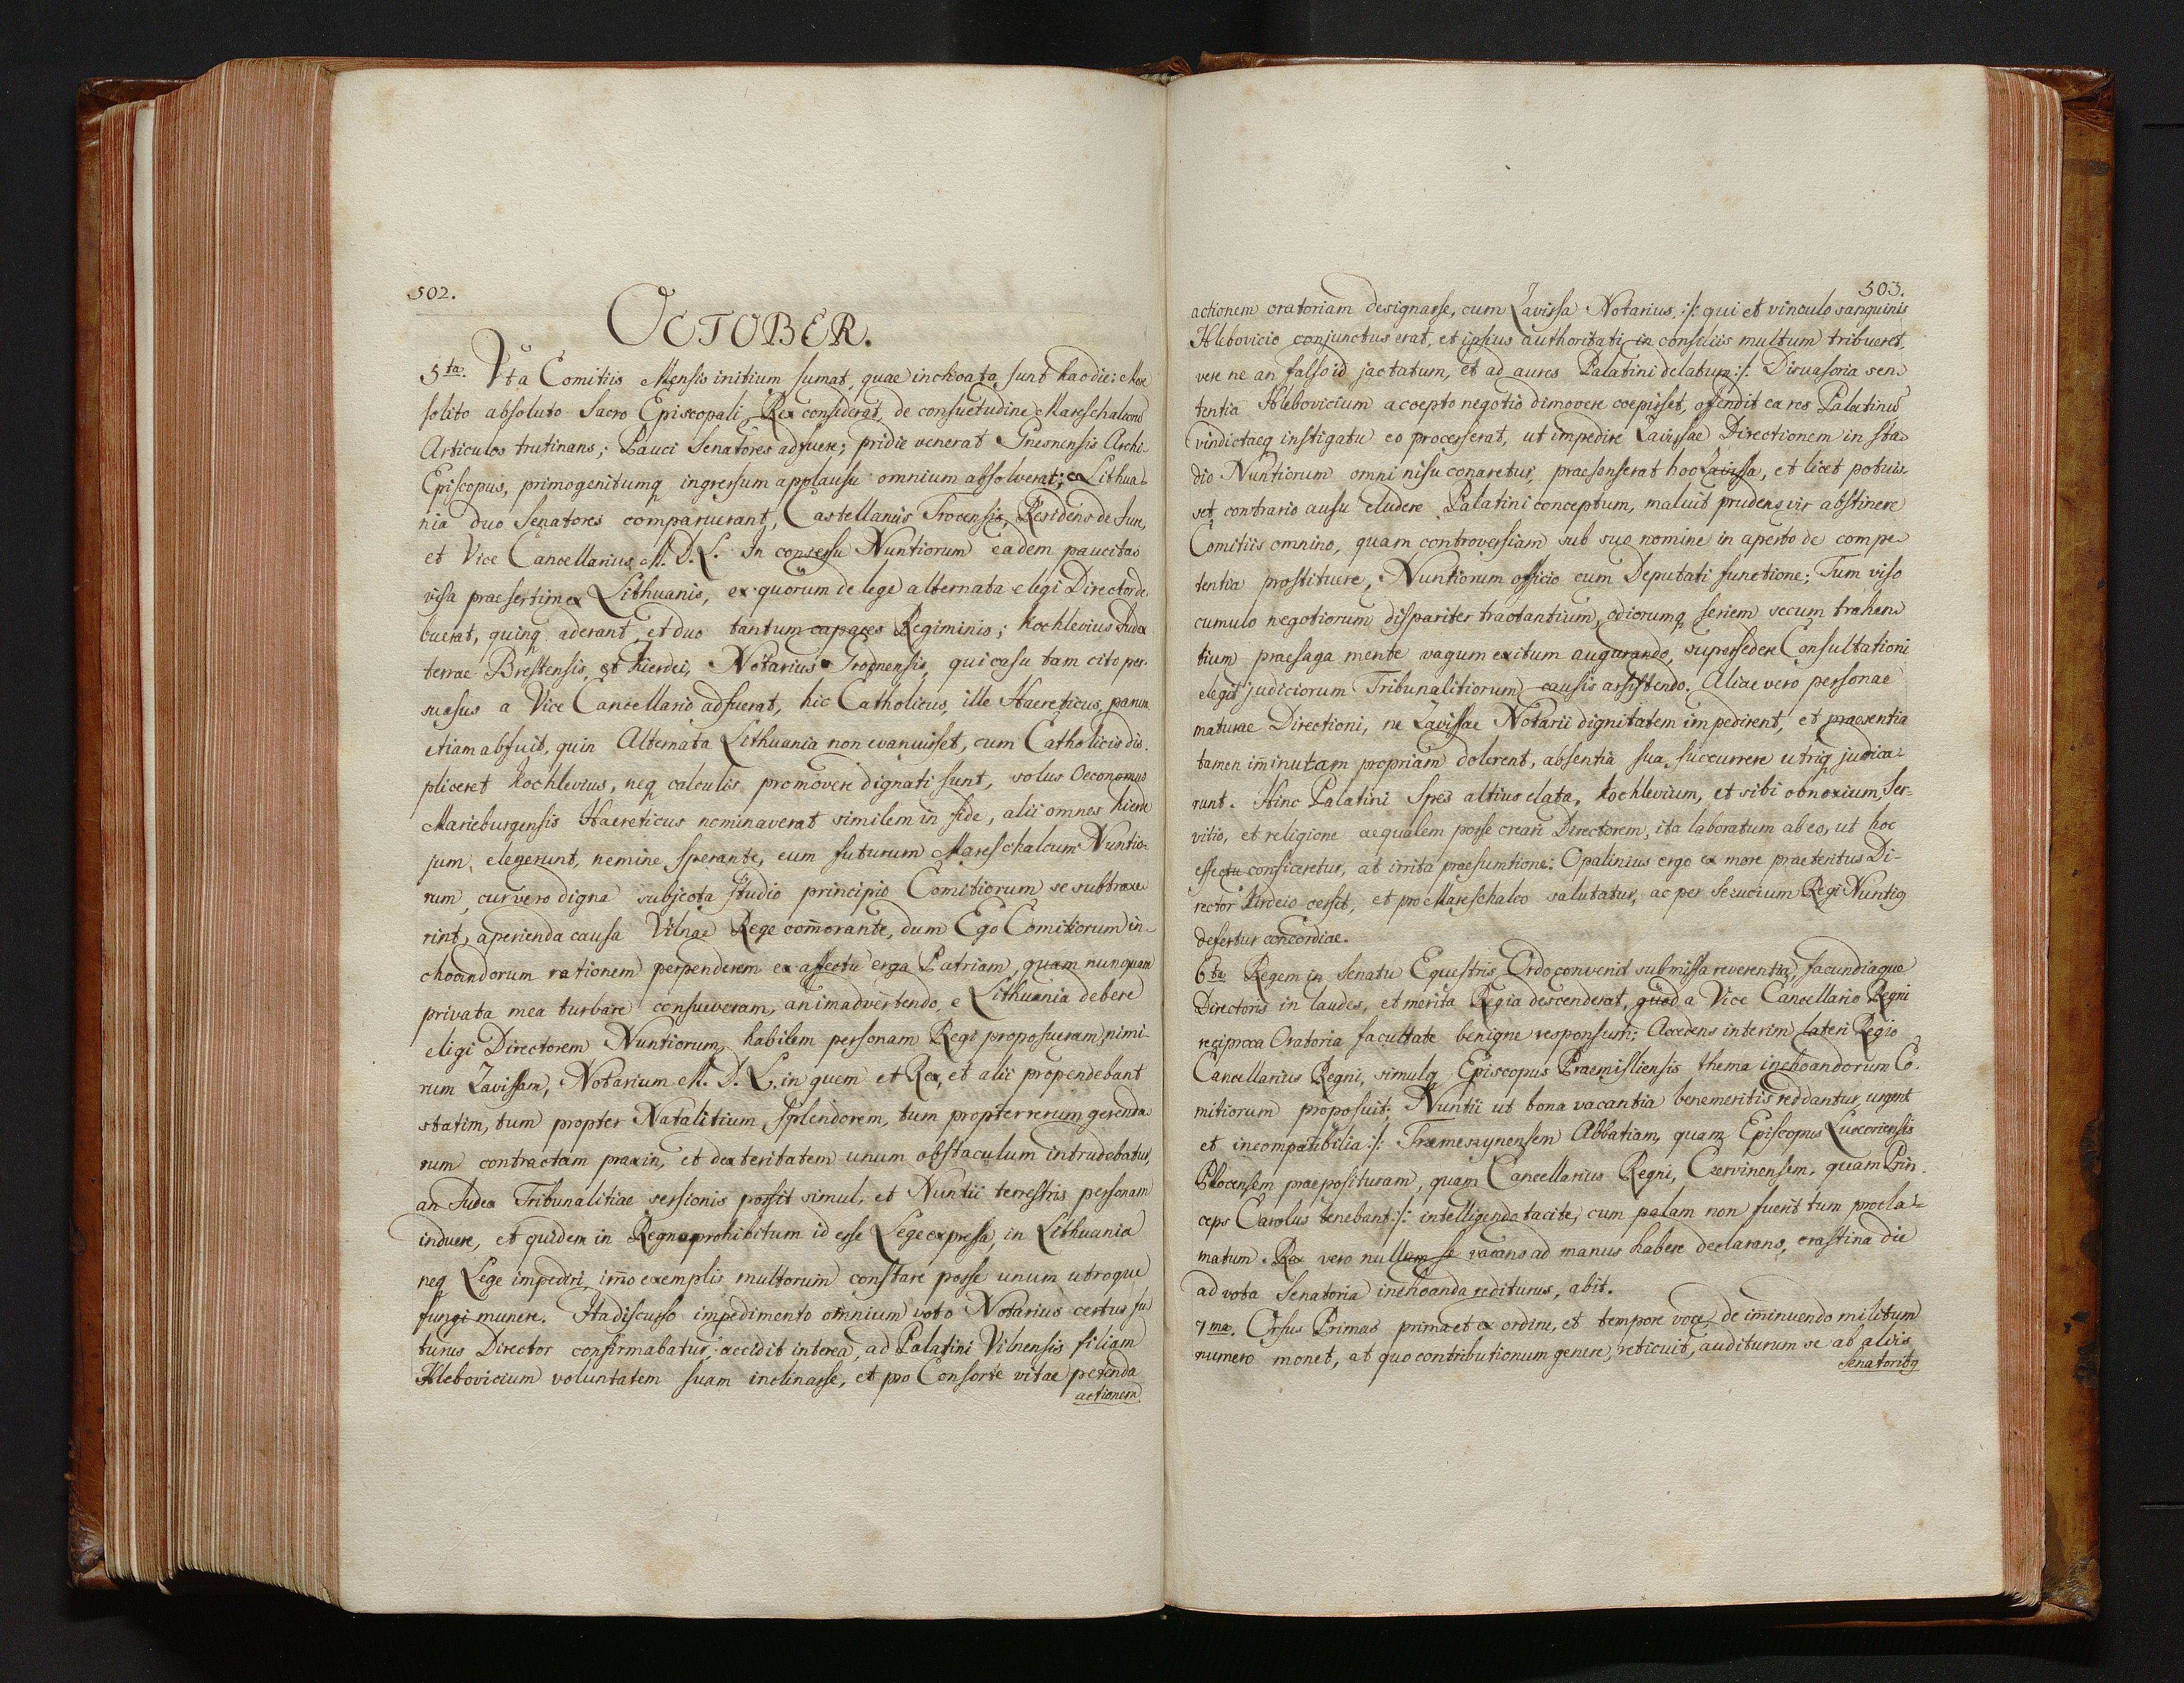 502.
OCTOBER.
5ta. Vt a Comitiis Mensis initium sumat, quae inchoata sunt hac die: More
solito absoluto Sacro Episcopali Rex considerat, de consuetudine Mareschalcorum
Articulos trutinans; Pauci Senatores adfuere; pridie venerat Gnesnensis Archi-
Episcopus, primogenitumq ingressum applausu omnium absolverat; e Lithua-
nia duo Senatores comparuerant, Castellanus Trocensis, Residens de Jure,
et Vice Cancellarius M. D. L. In consessu Nuntiorum eadem paucitas
visa praesertim ex Lithuanis, ex quorum de lege alternata elegi Director de-
buerat, quinq aderant, et duo tantum capaces Regiminis; Kochlevius Judex
terrae Brestensis, et Kierdei, Notarius Grodnensis, qui casu tam cito per-
suasus a Vice Cancellario adfuerat, hic Catholicus, ille Haereticus, parum
etiam abfuit, quin Alternata Lithuania non evanuisset, cum Catholicis dis-
pliceret Kochlevius, neq calculis promovere dignati sunt, solus Oeconomus
Marieburgensis Haereticus nominaverat similem in fide, alii omnes Kierde
jum, elegerunt, nemine sperante, eum futurum Mareschalcum Nuntio-
rum, cur vero digna subjecta studio principio Comitiorum se subtraxe-
rint, aperienda causa Vilnae Rege com̄orante, dum Ego Comitiorum in-
choandorum rationem perpenderem ex affectu erga Patriam, quam nunquam
privata mea turbare consueveram, animadvertendo, e Lithuania debere
eligi Directorem Nuntiorum, habilem personam Regi proposueram, nimi-
rum Zavissam, Notarium M. D. L. in quem et Rex, et alii propendebant
statim, tum propter Natalitium Splendorem, tum propter rerum gerenda-
rum contractam praxin, et dexteritatem unum obstaculum intrudebatur,
an Judex Tribunalitiae sessionis possit simul, et Nuntii terrestris personam
induere, et quidem in Regno prohibitum id esse Lege expressa, in Lithuania
neq Lege impediri, im̄o exemplis multorum constare posse unum utroque
fungi munere. Ita discusso impedimento omnium voto Notarius certus fu
turus Director confirmabatur, accidit interea, ad Palatini Vilnensis filiam
Hlebovicium voluntatem suam inclinasse, et pro Consorte vitae petenda
actionem
503.
actionem oratoriam designasse, cum Zavissa Notarius :/: qui et vinculo sanguinis
Hlebovicio conjunctus erat, et ipsius authoritati in consiliis multum tribueret,
vere ne an falso id jactatum, et ad aures Palatini delatum :/: Disvasoria sen-
tentia Hlebovicium a coepto negotio dimovere coepisset, ofendit ea res Palatinum
vindictaeq instigatu eo processerat, ut impedire Zavissae Directionem in sta-
dio Nuntiorum omni nisu conaretur, praesenserat hoc Zavissa, et licet potuis-
set contrario ausu eludere Palatini conceptum, maluit prudens vir abstinere
Comitiis omnino, quam controversiam sub suo nomine in aperto de compe-
tentia prostituere, Nuntiorum officio cum Deputati functione; Tum viso
cumulo negotiorum dispariter tractantium, odiorumq seriem secum trahen-
tium praesaga mente vagum exitum augurando, supersedere Consultationi
elegit judiciorum Tribunalitiorum causis assistendo. Aliae vero personae
maturae Directioni, ne Zavissae Notarii dignitatem impedirent, et praesentia
tamen im̄inutam propriam dolerent, absentia sua, succurrere utriq judica-
runt. Hinc Palatini Spes altius elata, Kochlevium, et sibi obnoxium, Ser-
vitio, et religione aequalem posse creari Directorem, ita laboratum ab eo, ut hoc
effectu conficeretur, at irrita praesumtione: Opalinius ergo ex more praeteritus Di-
rector Kirdeio cessit, et pro Mareschalco salutatur, ac per Sezucium Regi Nuntiq
desertur concordiae.
6ta Regem in Senatu Equestris Ordo convenit submissa reverentia, facundiaque
Directoris in laudes, et merita Regia descenderat, quod a Vice Cancellario Regni
reciproca Oratoria facultate benigne responsum; Accedens interim lateri Regio
Cancellarius Regni, simulq Episcopus Praemisliensis thema inchoandorum Co-
mitiorum proposuit; Nuntii ut bona vacantia benemeritis reddantur, urgent
et incompatibilia :/: Trzemesznensem Abbatiam, quam Episcopus Luceoriensis
Plocensem praeposituram, quam Cancellarius Regni, Czervinensem, quam Prin-
ceps Carolus tenebant :/: intelligendo tacite, cum palam non fuerit tum procla-
matum. Rex vero nullum se vacans ad manus habere declarans, crastina die
ad vota Senatoria inchoanda rediturus, abit.
7ma. Orsus Primas prima et ex ordine, et tempore voce, de im̄inuendo militum
numero monet, at quo contributionum genere, reticuit, auditurum se ab aliis
Senatoribq